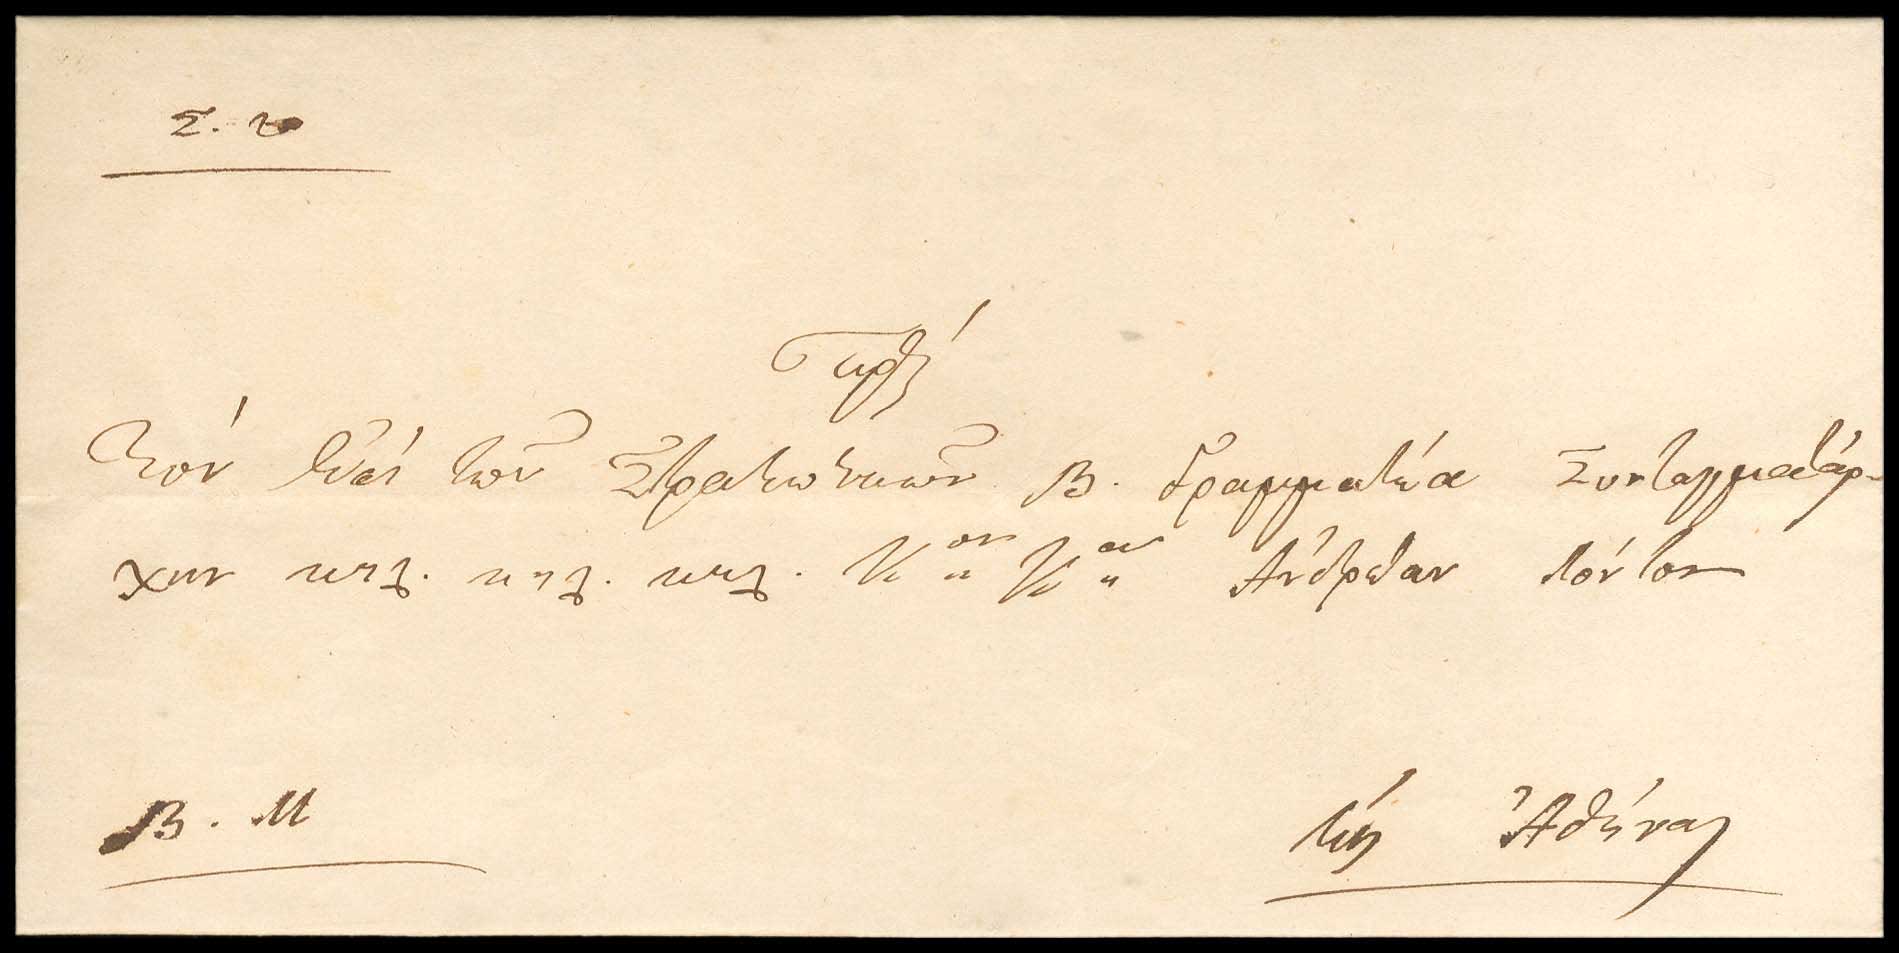 Σ. υ
Πρὸς
Τὸν ἐπὶ τῶν Στρατιωτικῶν Β. Γραμματέα Συνταγματάρ-
χην κτλ. κτλ. κτλ. Κ^ον Κ^ον Ἀνδρέαν Λόντον
Β. Μ
εἰς Ἀθήνας